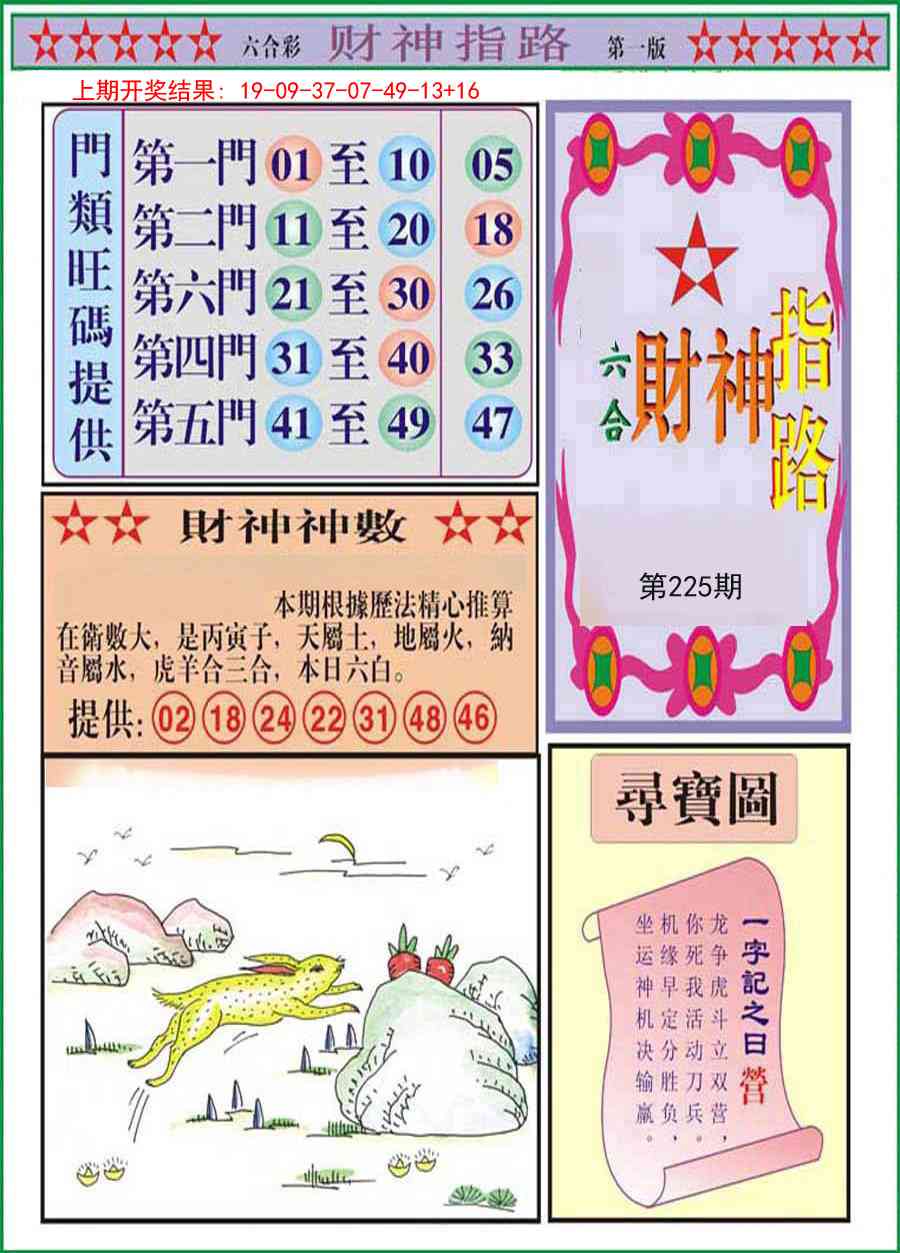 六合彩 财神指路 第一版
上期开奖结果：19-09-37-07-49-13+16
門類旺碼提供
第一門 01 至 10 05
第二門 11 至 20 18
第六門 21 至 30 26
第四門 31 至 40 33
第五門 41 至 49 47
六合
財神
指路
第225期
財神神數
本期根據歷法精心推算
在術數大，是丙寅子，天屬土，地屬火，納
音屬水，虎羊合三合，本日六白。
提供: 02 18 24 22 31 48 46
尋寶圖
一字記之曰 營
龙争虎斗立双营，
你死我活动刀兵。
机缘早定分胜负，
坐运神机决输赢。